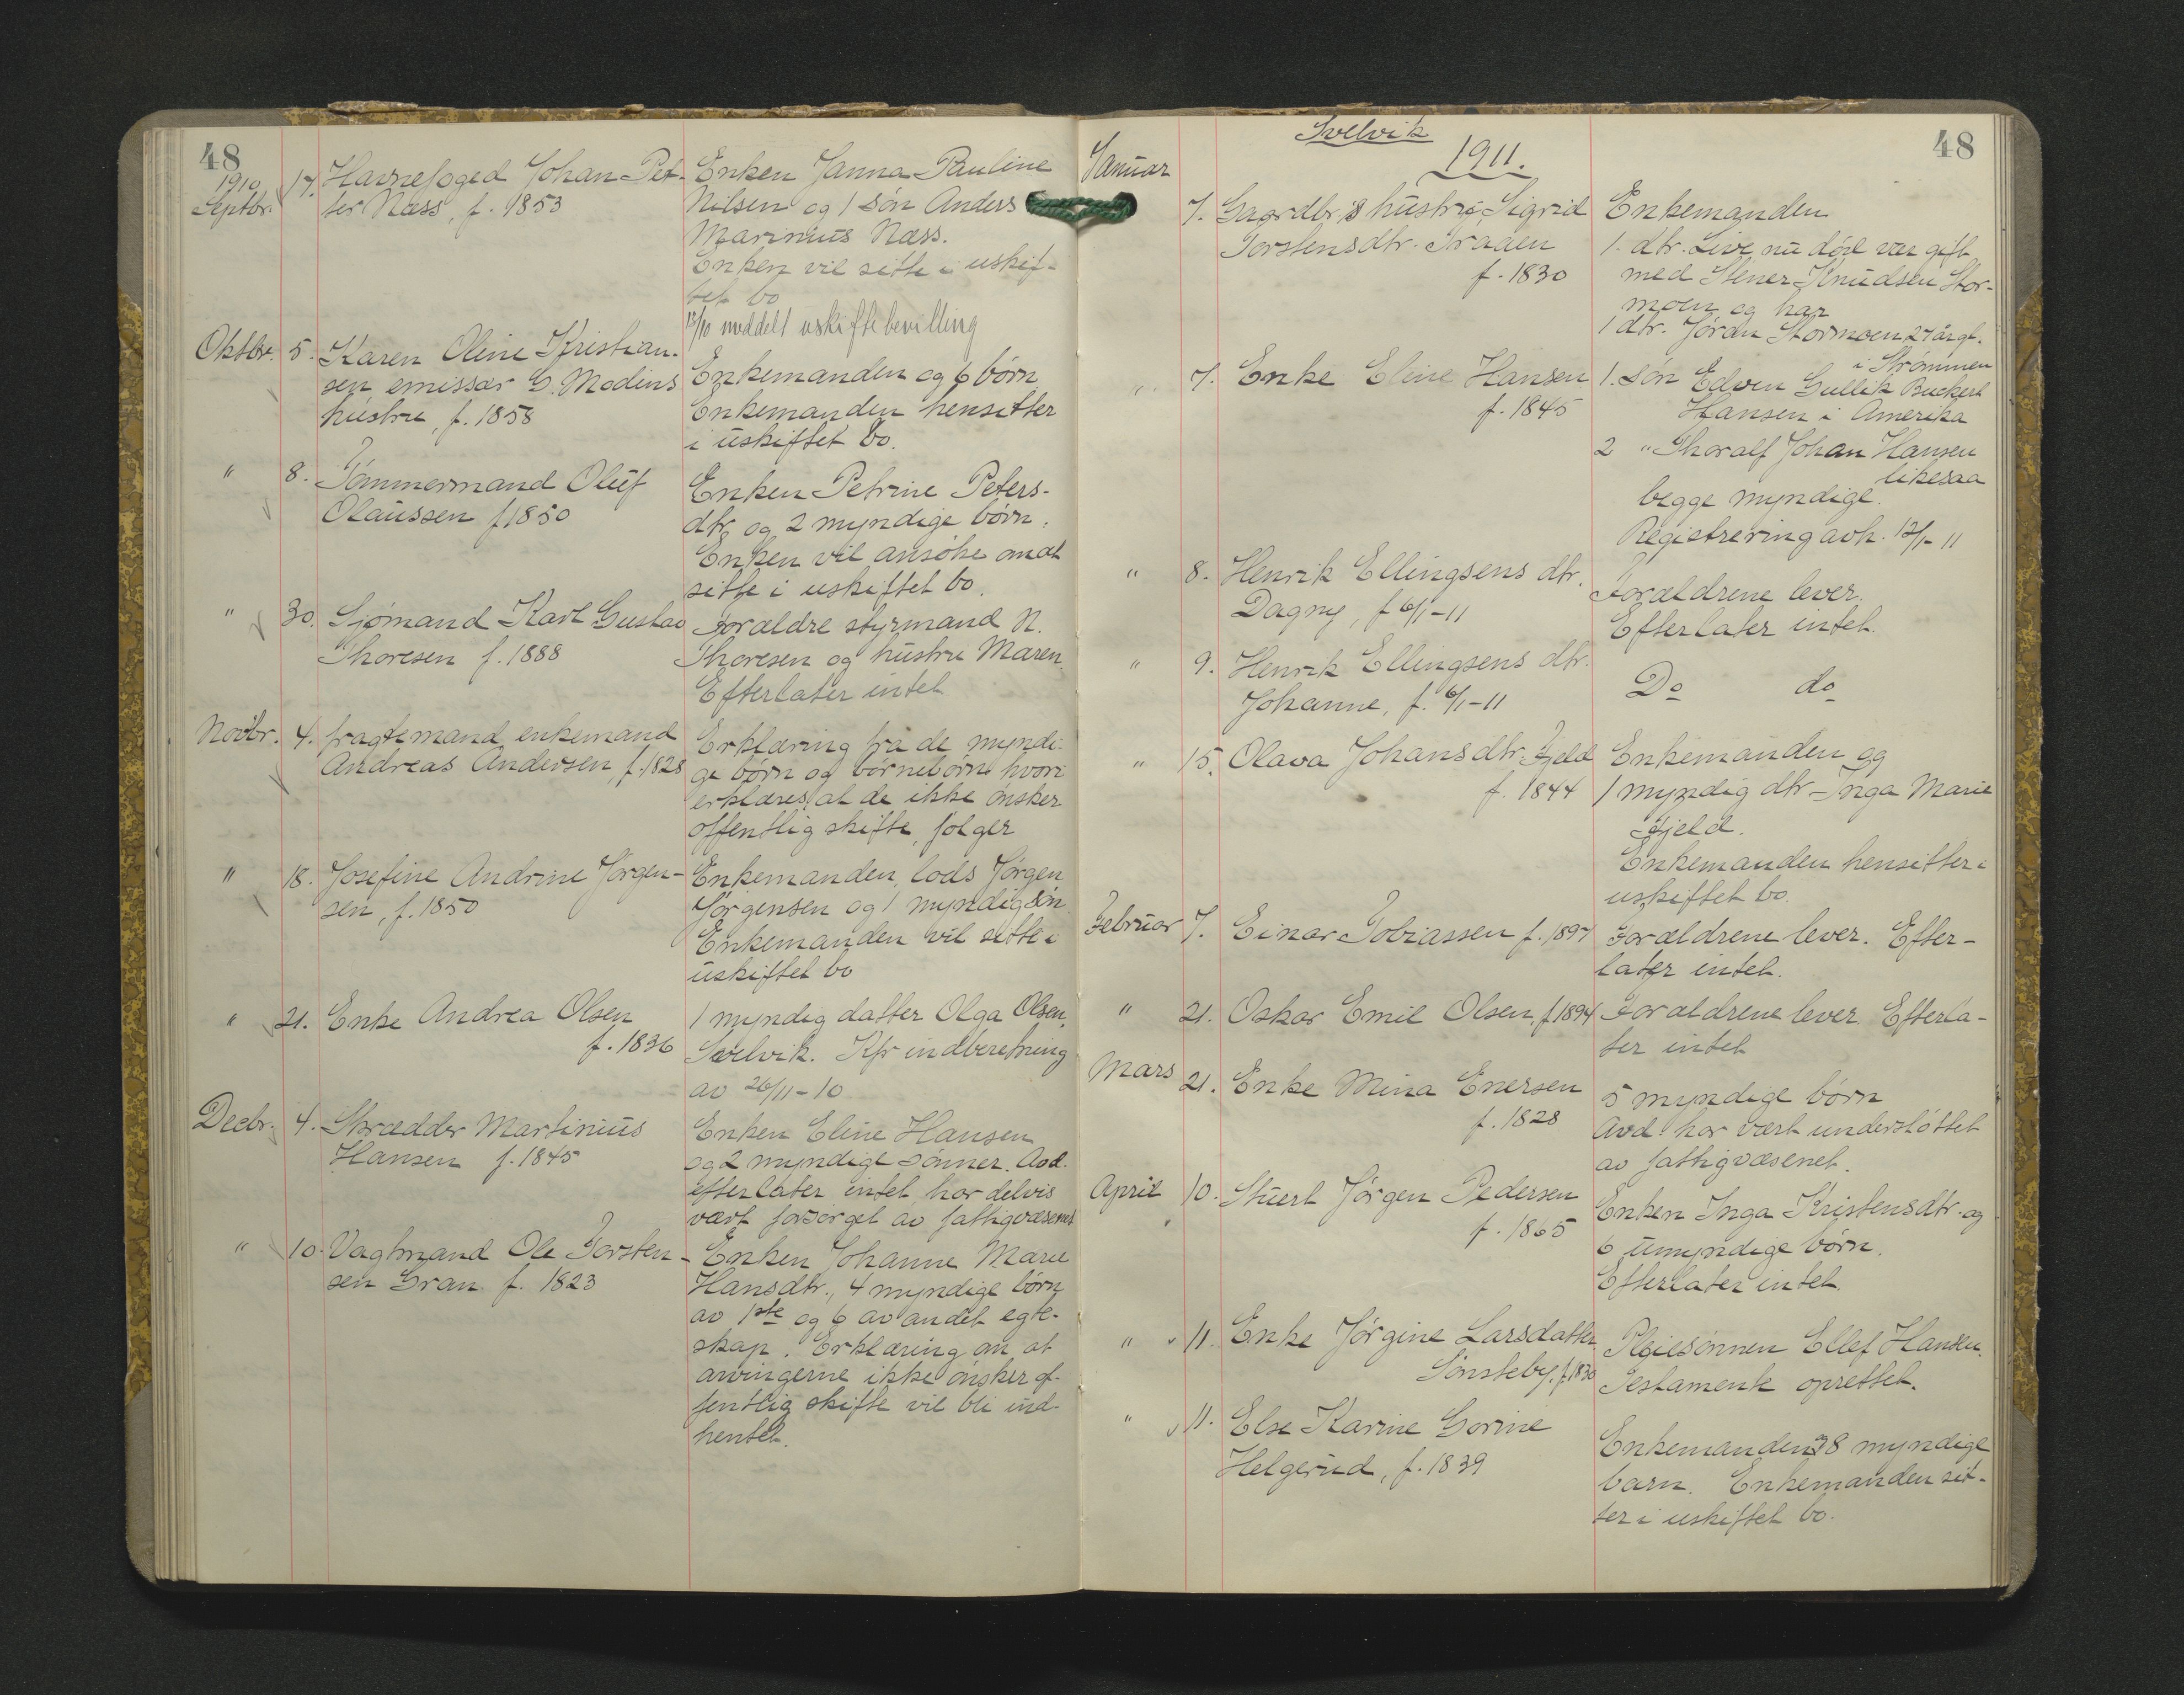 48
1910
Septbr. 17. Havnefoged Johan Pet-
ter Næss, f. 1853
Enken Janna Pauline
Nilsen og 1 søn Anders
Marinius Næss.
Enken vil sitte i uskif-
tet bo
13/10 meddelt uskiftebevilling
Oktbr. 5. Karen Oline Kristian-
sen emissær G. Modins
hustru, f. 1858
Enkemanden og 6 børn
Enkemanden hensitter
i uskiftet bo.
" 8. Tømmermand Oluf
Olaussen f 1850
Enken Petrine Peters-
dtr. og 2 myndige børn.
Enken vil ansøke om at
sitte i uskiftet bo.
" 30. Sjømand Karl Gustav
Thoresen f. 1888
Forældre styrmand N.
Thoresen og hustru Maren.
Efterlater intet
Novbr. 4. fragtemand enkemand
Andreas Andersen, f. 1828
Erklæring fra de myndi-
ge børn og børnebørn hvori
erklæres at de ikke ønsker
offentlig skifte, følger
" 18. Josefine Andrine Jørgen-
sen, f. 1850
Enkemanden, lods Jørgen
Jørgensen og 1 myndig søn.
Enkemanden vil sitte i
uskiftet bo
" 21. Enke Andrea Olsen
f. 1836
1 myndig datter Olga Olsen,
Svelvik. Kfr indberetning
av 26/11-10
Decbr. 4. Skrædder Martinius
Hansen f. 1845
Enken Eline Hansen
og 2 myndige sønner. Avd.
efterlater intet har delvis
vært forsørget av fattigvæsenet
" 10. Vagtmand Ole Torsten-
sen Gran f. 1823
Enken Johanne Marie
Hansdtr., 4 myndige børn
av 1ste og 6 av andet egte-
skap. Erklæring om at
arvingerne ikke ønsker of-
fentlig skifte vil bli ind-
hentet.
48
Svelvik
1911.
Januar
7. Gaardbr.'s hustru, Sigrid
Torstensdtr. Traaen
f. 1830
Enkemanden
1. dtr. Live, nu død var gift
med Stener Knudsen Stor-
moen og har
1 dtr. Jøran Stormoen 27 år gl.
i Strømmen
" 7. Enke Eline Hansen
f. 1845
1. søn Edvin Gullik Buckert
Hansen i Amerika
2 " Thoralf Johan Hansen
likesaa
begge myndige.
Registrering avh. 12/1-11
" 8. Henrik Ellingsens dtr.
Dagny, f 6/1-11
Forældrene lever.
Efterlater intet.
" 9. Henrik Ellingsens dtr.
Johanne, f. 6/1-11
Do do
" 15. Olava Johansdtr. Fjeld
f. 1844
Enkemanden og
1 myndig dtr Inga Marie
Fjeld.
Enkemanden hensitter i
uskiftet bo.
Februar 7. Einar Tobiassen f. 1897
Forældrene lever. Efter-
later intet.
" 21. Oskar Emil Olsen, f 1894
Forældrene lever. Efterla-
ter intet
Mars 21. Enke Mina Enersen
f. 1828
5 myndige børn
Avd. har vært understøttet
av fattigvæsenet.
April 10. Stuert Jørgen Pedersen
f. 1865
Enken Inga Kristensdtr. og
6 umyndige børn.
Efterlater intet.
" 11. Enke Jørgine Larsdatter
Sønsteby, f. 1830
Pleiesønnen Ellef Hansen.
Testament oprettet.
" 11. Else Karine Gorine
Helgerud, f. 1839
Enkemanden og 8 myndige
barn. Enkemanden sit-
ter i uskiftet bo.